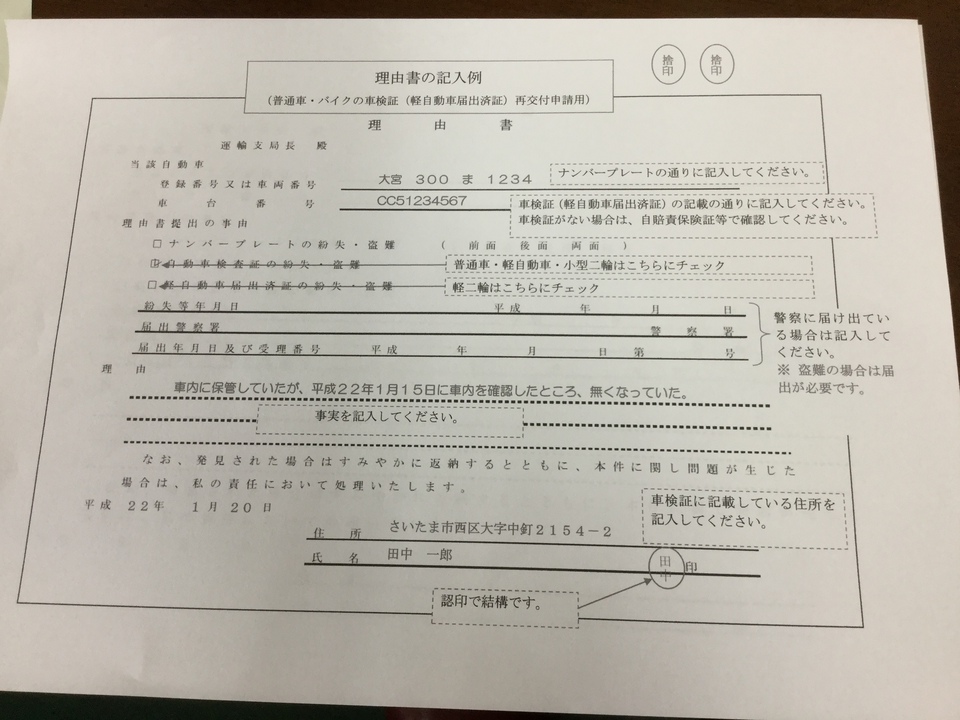 捨印 捨印
理由書の記入例
(普通車・バイクの車検証(軽自動車届出済証)再交付申請用)
理由書
運輸支局長 殿
当該自動車
登録番号又は車両番号 大宮 300 ま 1234 ナンバープレートの通りに記入してください。
車台番号 CC51234567 車検証(軽自動車届出済証)の記載の通りに記入してください。
車検証がない場合は、自賠責保険証等で確認してください。
理由書提出の事由
□ナンバープレートの紛失・盗難 ( 前面 後面 両面 )
□自動車検査証の紛失・盗難 普通車・軽自動車・小型二輪はこちらにチェック
□軽自動車届出済証の紛失・盗難 軽二輪はこちらにチェック
紛失等年月日 平成 年 月 日
届出警察署 警察署
届出年月日及び受理番号 平成 年 月 日 第 号
警察に届け出てい
る場合は記入して
ください。
※ 盗難の場合は届
出が必要です。
理由
車内に保管していたが、平成22年1月15日に車内を確認したところ、無くなっていた。
事実を記入してください。
なお、発見された場合はすみやかに返納するとともに、本件に関し問題が生じた
場合は、私の責任において処理いたします。
平成 22年 1月 20日
車検証に記載している住所を
記入してください。
住所 さいたま市西区大字中釘2154-2
氏名 田中 一郎 田中 印
認印で結構です。